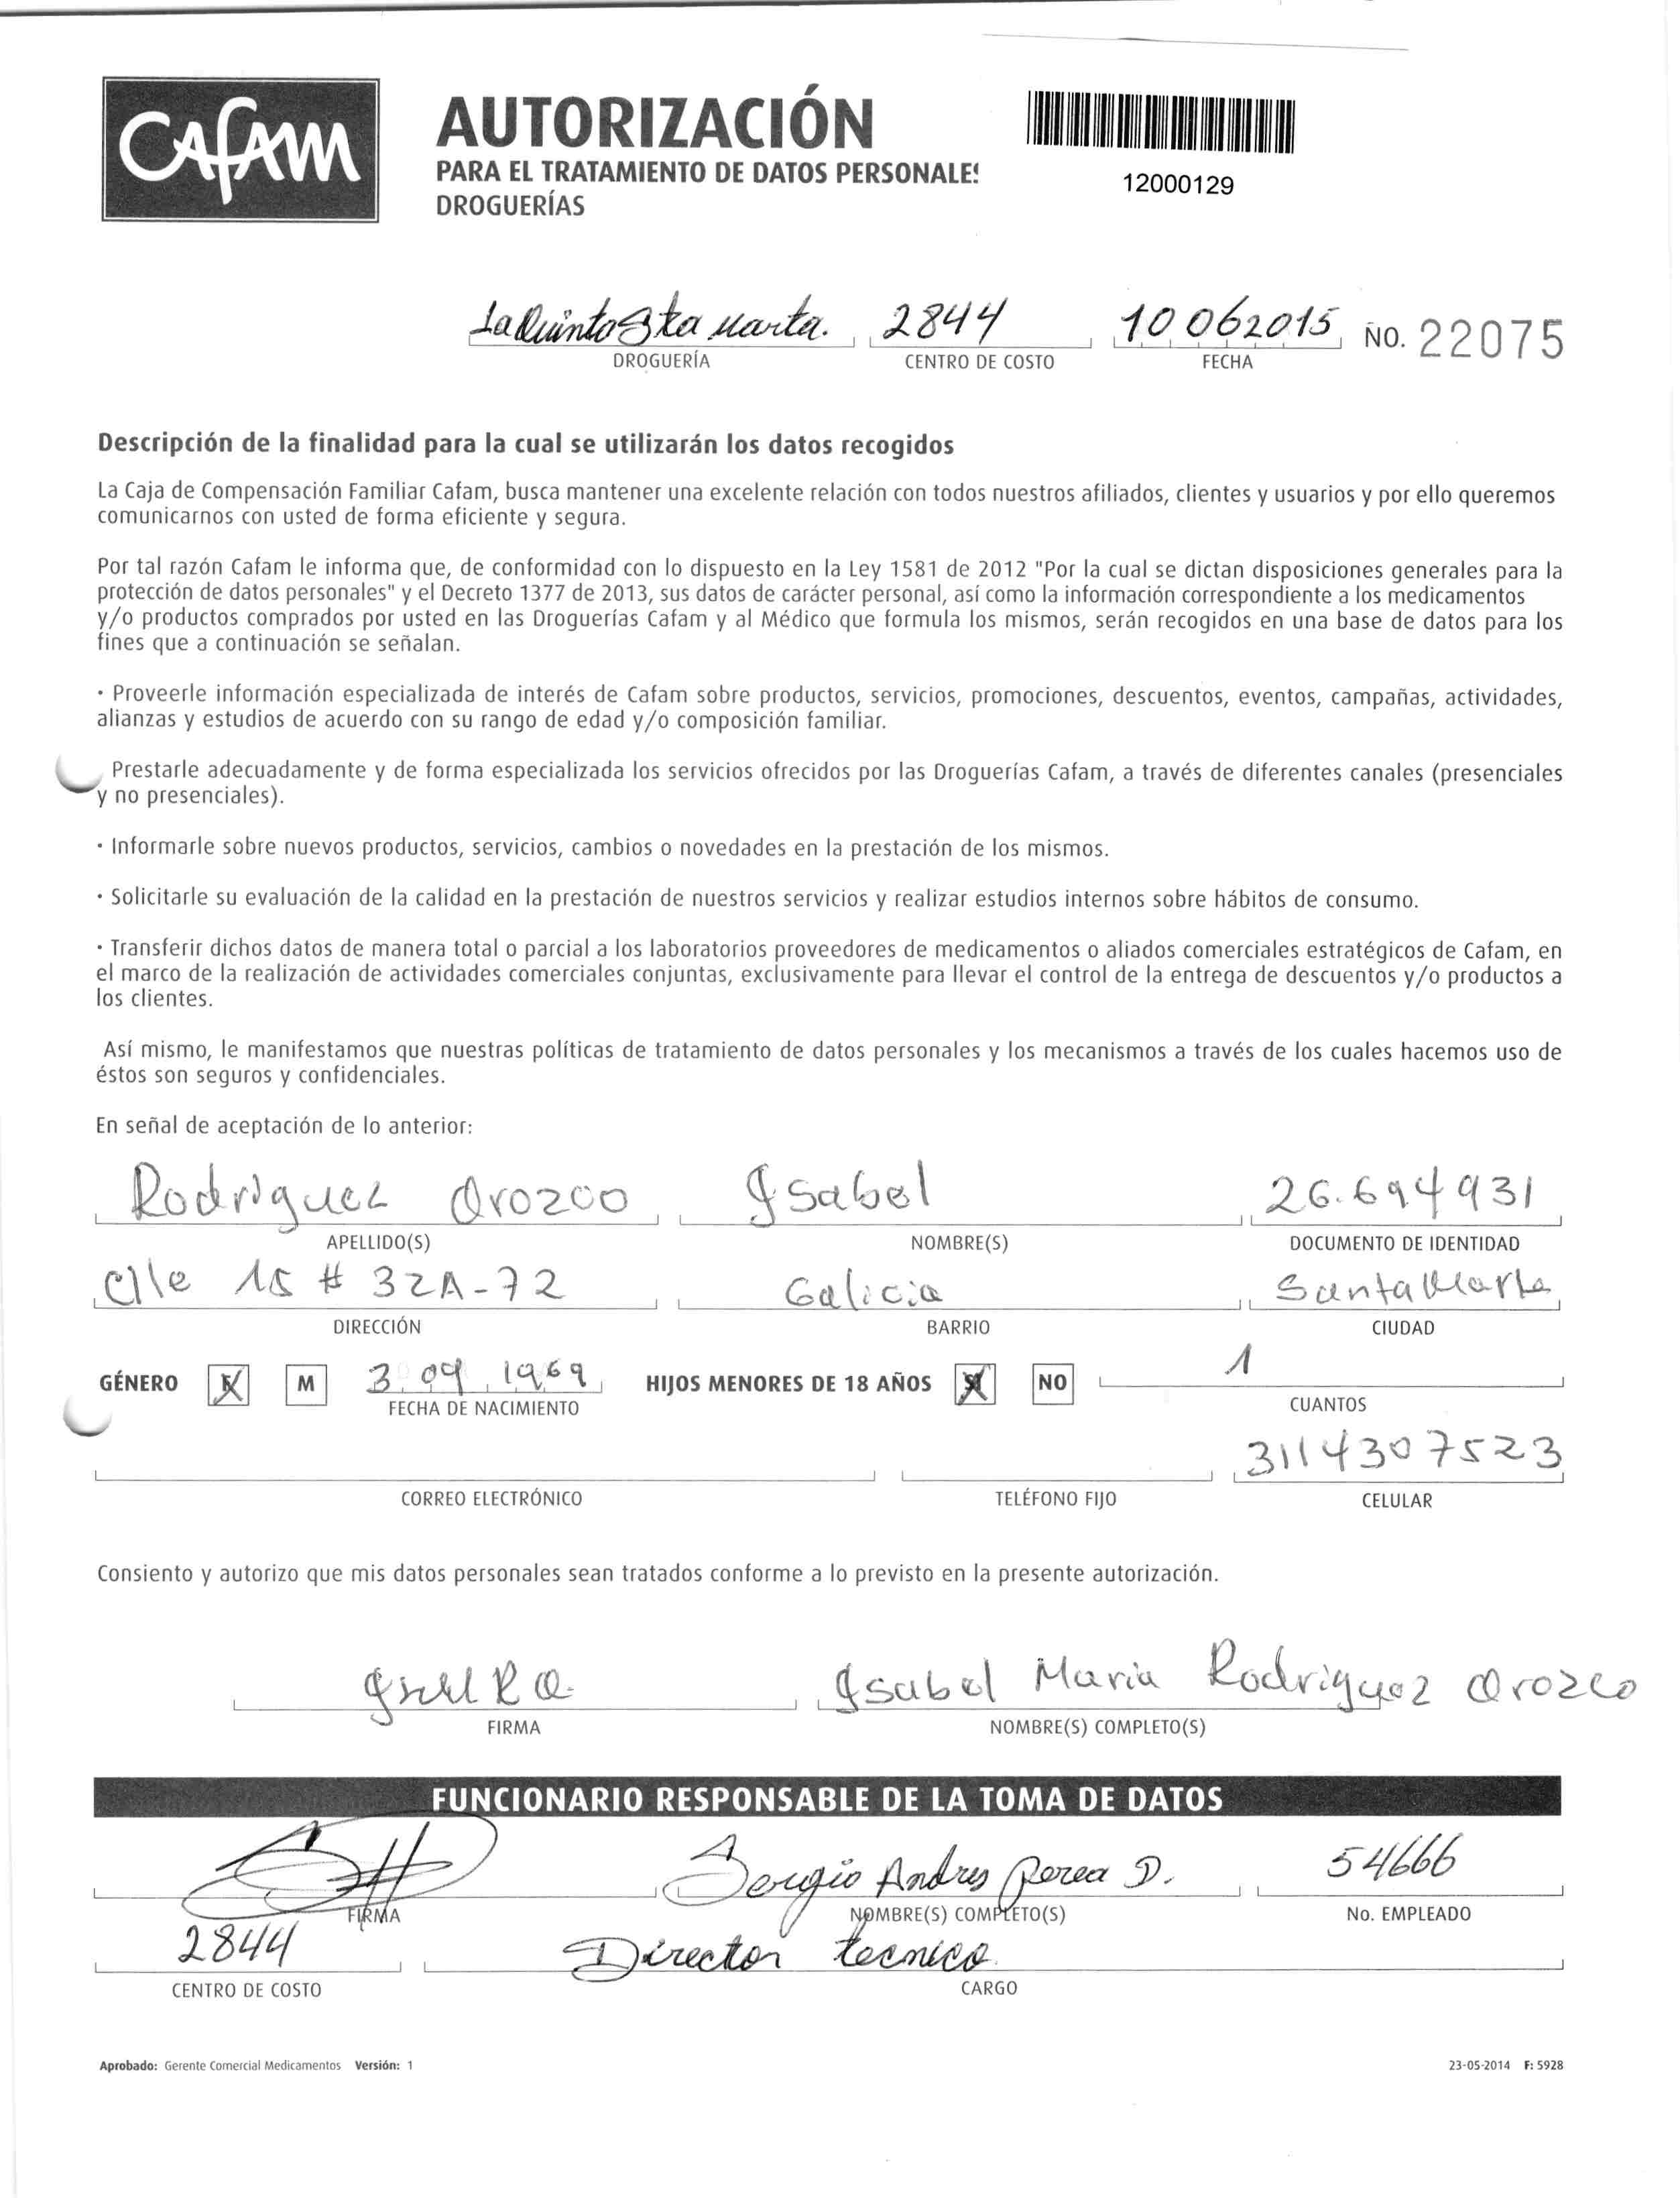 Cafam
AUTORIZACIÓN
PARA EL TRATAMIENTO DE DATOS PERSONALES
DROGUERÍAS
12000129
La Quinta Sta Marta. 2844 10 06 2015 No. 22075
DROGUERÍA CENTRO DE COSTO FECHA
Descripción de la finalidad para la cual se utilizarán los datos recogidos
La Caja de Compensación Familiar Cafam, busca mantener una excelente relación con todos nuestros afiliados, clientes y usuarios y por ello queremos
comunicarnos con usted de forma eficiente y segura.
Por tal razón Cafam le informa que, de conformidad con lo dispuesto en la Ley 1581 de 2012 "Por la cual se dictan disposiciones generales para la
protección de datos personales" y el Decreto 1377 de 2013, sus datos de carácter personal, así como la información correspondiente a los medicamentos
y/o productos comprados por usted en las Droguerías Cafam y al Médico que formula los mismos, serán recogidos en una base de datos para los
fines que a continuación se señalan.
· Proveerle información especializada de interés de Cafam sobre productos, servicios, promociones, descuentos, eventos, campañas, actividades,
alianzas y estudios de acuerdo con su rango de edad y/o composición familiar.
Prestarle adecuadamente y de forma especializada los servicios ofrecidos por las Droguerías Cafam, a través de diferentes canales (presenciales
y no presenciales).
· Informarle sobre nuevos productos, servicios, cambios o novedades en la prestación de los mismos.
· Solicitarle su evaluación de la calidad en la prestación de nuestros servicios y realizar estudios internos sobre hábitos de consumo.
· Transferir dichos datos de manera total o parcial a los laboratorios proveedores de medicamentos o aliados comerciales estratégicos de Cafam, en
el marco de la realización de actividades comerciales conjuntas, exclusivamente para llevar el control de la entrega de descuentos y/o productos a
los clientes.
Así mismo, le manifestamos que nuestras políticas de tratamiento de datos personales y los mecanismos a través de los cuales hacemos uso de
éstos son seguros y confidenciales.
En señal de aceptación de lo anterior:
Rodriguez Orozco Isabel 26.694931
APELLIDO(S) NOMBRE(S) DOCUMENTO DE IDENTIDAD
Clle 15 # 32A-72 Galicia Santa Marta
DIRECCIÓN BARRIO CIUDAD
GÉNERO F M 3 09 1969 HIJOS MENORES DE 18 AÑOS SI NO 1
FECHA DE NACIMIENTO CUANTOS
3114307523
CORREO ELECTRÓNICO TELÉFONO FIJO CELULAR
Consiento y autorizo que mis datos personales sean tratados conforme a lo previsto en la presente autorización.
Isabel Maria Rodriguez Orozco
FIRMA NOMBRE(S) COMPLETO(S)
FUNCIONARIO RESPONSABLE DE LA TOMA DE DATOS
Sergio Andres Perea D. 54666
FIRMA NOMBRE(S) COMPLETO(S) No. EMPLEADO
2844 Director tecnico.
CENTRO DE COSTO CARGO
Aprobado: Gerente Comercial Medicamentos Versión: 1 23-05-2014 F: 5928